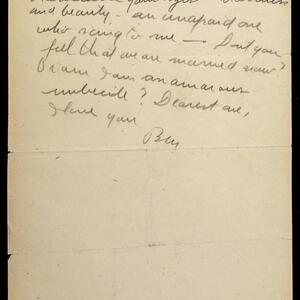 and beauty — an unafraid one
who sang to me — Don't you
feel that we are married now?
Or am I am an amorous
imbecile? Dearest one,
I love you
Ben